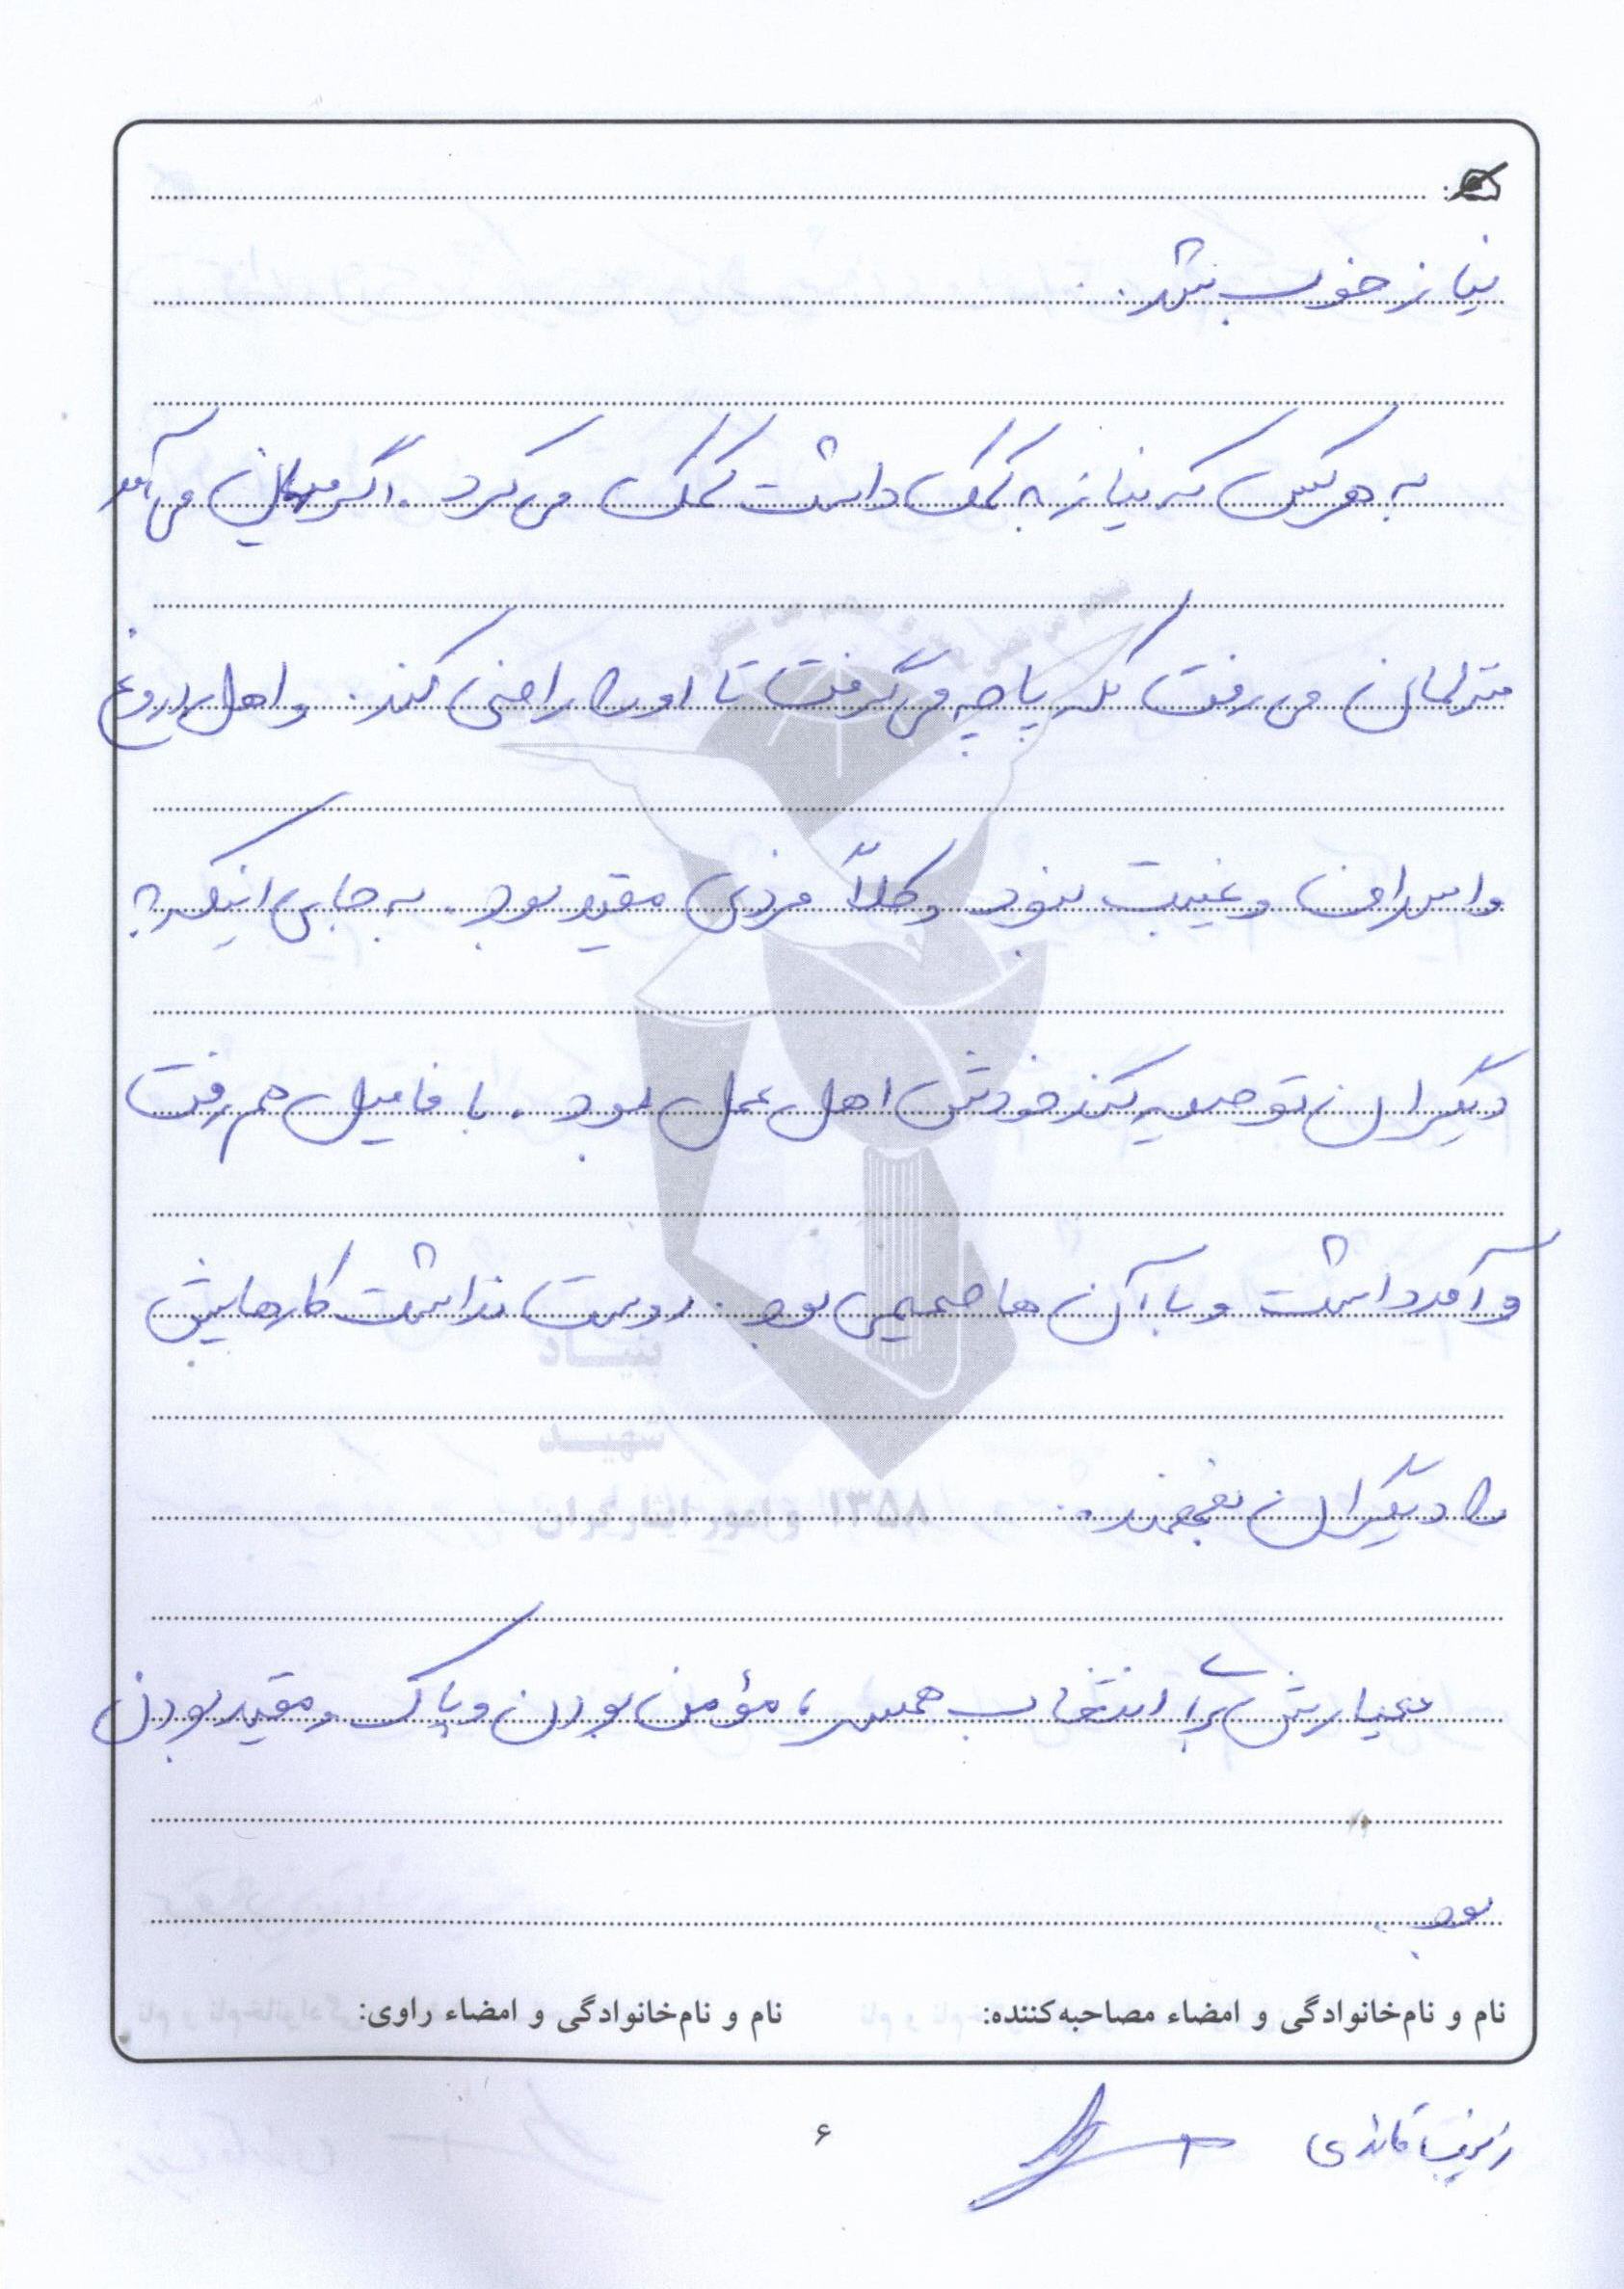 نیاز خوب بشد.
به هر کس که نیاز به کمک داشت کمک می‌کرد. اگر مهمان می‌آمد
منزلمان می‌رفت کله پاچه می‌گرفت تا او را راضی کند. و اهل دروغ
و اسراف و غیبت نبود و کلاً فردی مقید بود. به جایی اینکه به
دیگران توصیه کند خودش اهل عمل بود. با فامیل هم رفت
و آمد داشت و با آن ها صمیمی بود. دوست نداشت کارهایش
را دیگران بفهمند.
معیارش برا انتخاب همسر، مؤمن بودن و پاک و مقید بودن
بود.
نام و نام‌خانوادگی و امضاء مصاحبه‌کننده: نام و نام‌خانوادگی و امضاء راوی:
زینب قائدی
۶